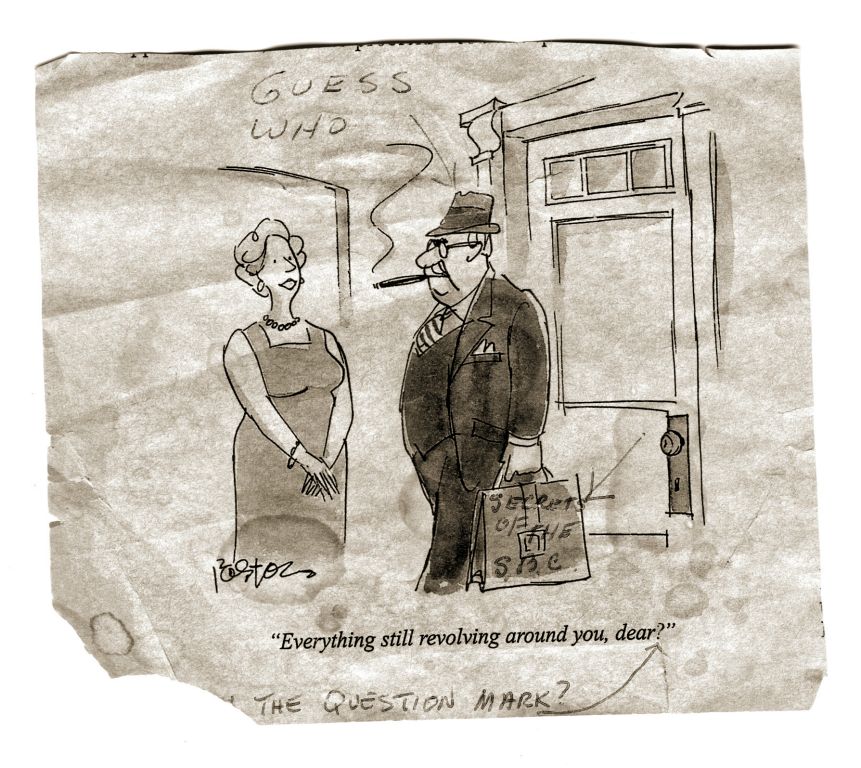 GUESS
WHO
SECRETS
OF THE
S.B.C.
“Everything still revolving around you, dear?”
THE QUESTION MARK?